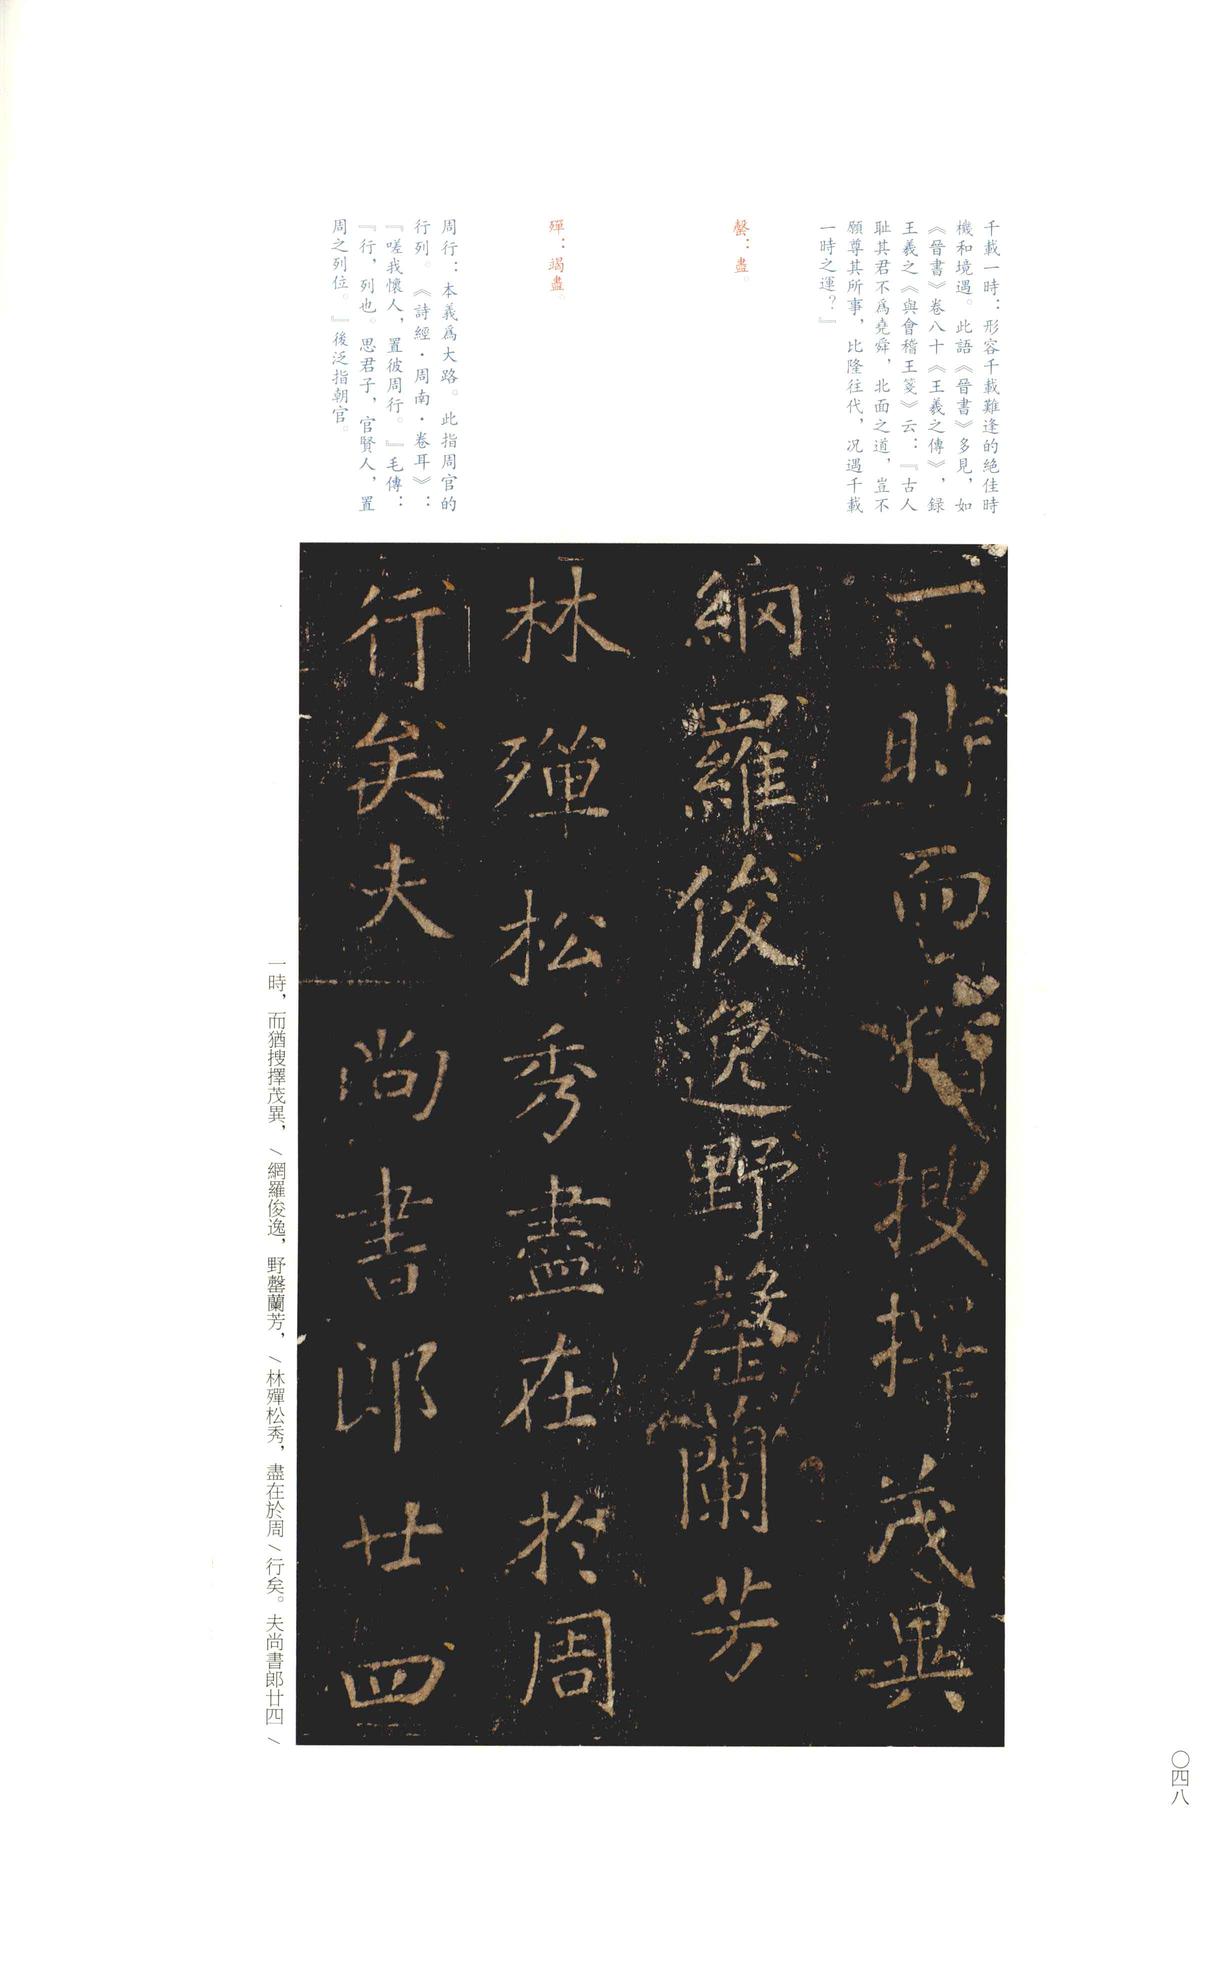 千載一時：形容千載難逢的絶佳時
機和境遇。此語《晉書》多見，如
《晉書》卷八十《王羲之傳》，録
王羲之《與會稽王箋》云：『古人
耻其君不爲堯舜，北面之道，豈不
願尊其所事，比隆往代，况遇千載
一時之運？』
罄：盡。
殫：竭盡。
周行：本義爲大路。此指周官的
行列。《詩經·周南·卷耳》：
『嗟我懷人，置彼周行。』毛傳：
『行，列也。思君子，官賢人，置
周之列位。』後泛指朝官。
一時而猶搜擇茂異
網羅俊逸野罄蘭芳
林殫松秀盡在於周
行矣夫尚書郎廿四
一時，而猶搜擇茂異，／網羅俊逸，野罄蘭芳，／林殫松秀，盡在於周／行矣。夫尚書郎廿四／
〇四八